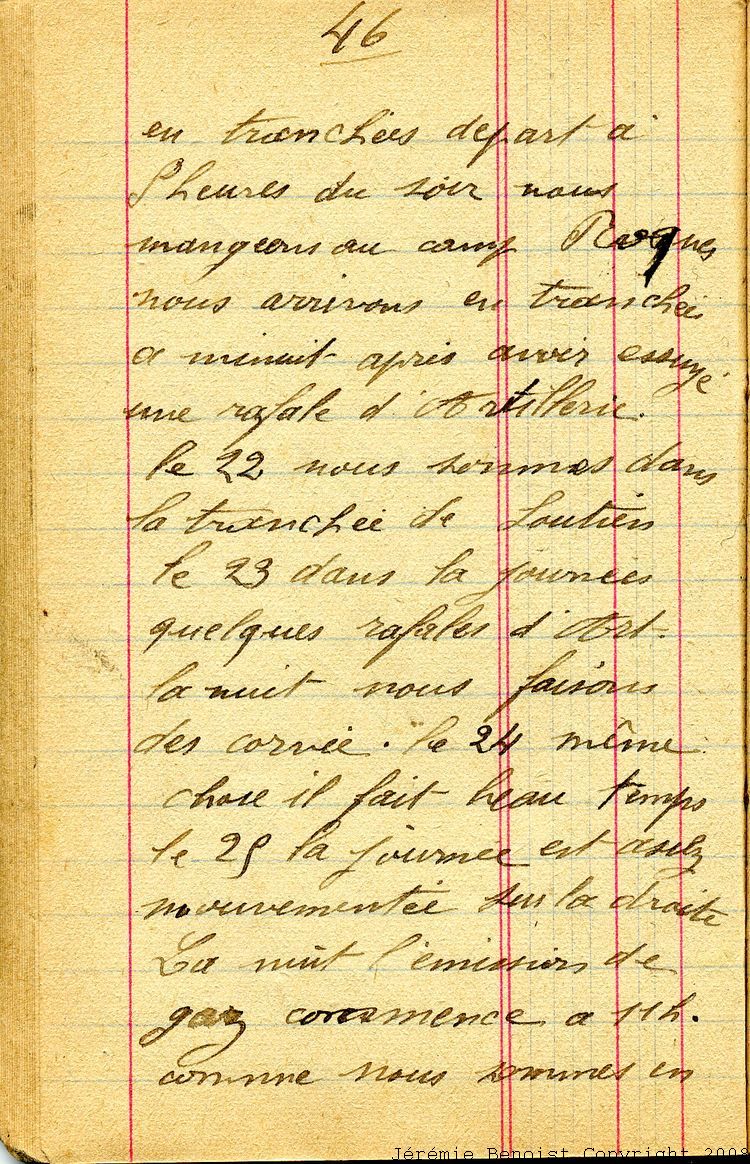 46
en tranchées depart a
heures du soir nous
mangeons au camp Roques
nous arrivons en tranchée
a minuit après avoir essuyé
une rafale d'Artillerie.
le 22 nous sommes dans
la tranchée de soutien
le 23 dans la journées
quelques rafales d'Art.
la nuit nous faisons
des corvée. le 24 même
chose il fait beau temps
le 25 la journee est asez
mouvementée sur la droite
La nuit l'emission de
gaz commence a 11h.
comme nous sommes en
Jérémie Benoist Copyright